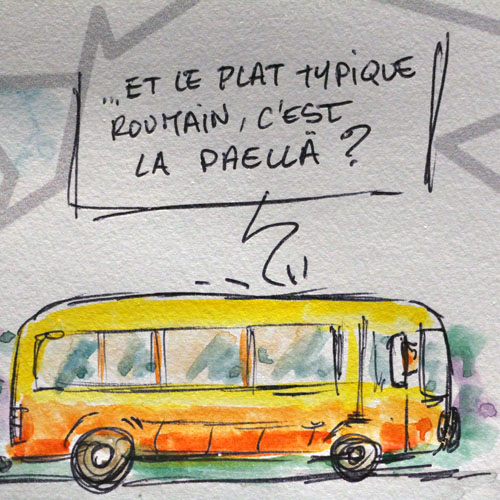 ...ET LE PLAT TYPIQUE
ROUMAIN, C'EST
LA PAELLÄ ?